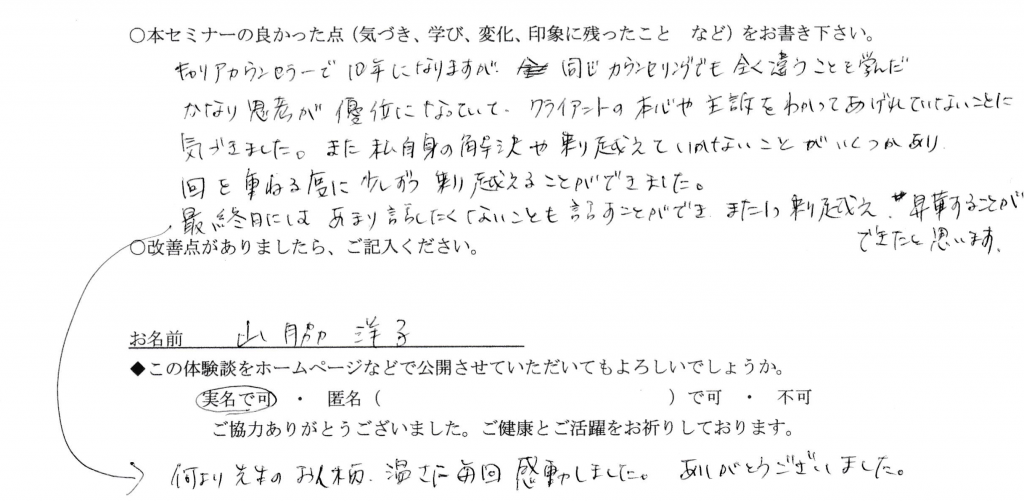 ○本セミナーの良かった点（気づき、学び、変化、印象に残ったこと　など）をお書き下さい。
キャリアカウンセラーで10年になりますが、同じカウンセリングでも全く違うことを学んだ
かなり思考が優位になっていて、クライアントの本心や主訴をわかってあげれていないことに
気づきました。また私自身の解決や乗り越えていかないことがいくつかあり、
回を重ねる度に少しずつ乗り越えることができました。
最終日にはあまり話したくないことも話すことができ、また1つ乗り越え、昇華することが
できたと思います。
○改善点がありましたら、ご記入ください。
お名前　山脇　洋子
◆この体験談をホームページなどで公開させていただいてもよろしいでしょうか。
実名で可　・　匿名（　　　　　　　　　　　　　　　）で可　・　不可
ご協力ありがとうございました。ご健康とご活躍をお祈りしております。
何より先生のお人柄、温さに毎回感動しました。ありがとうございました。